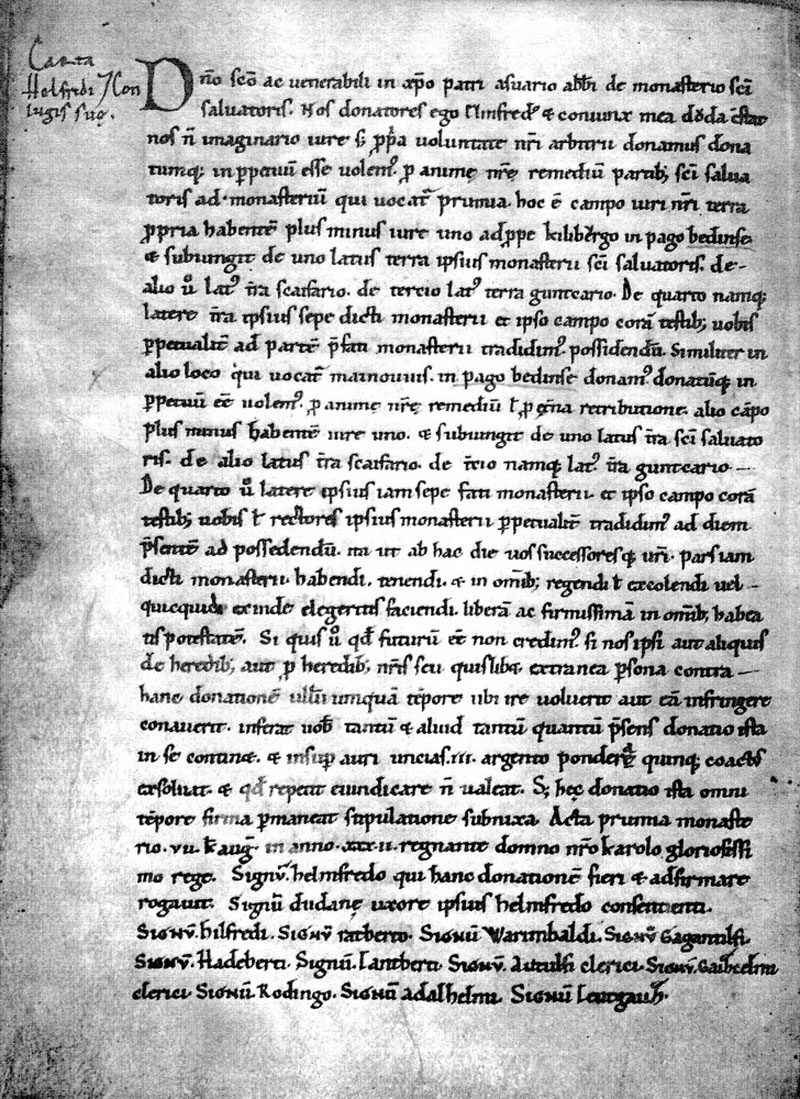 Carta
Helfredi ⁊ Con
iugis suę.
Dño sc̄o ac uenerabili in xp̄o patri asuario abb̄i de monasterio sc̄i
saluatoris. Nos donatores ego Elmfred᷒ & coniunx mea doda c̄stat
nos ñ imaginario iure s; ꝓpͥa uoluntate nr̄i arbitrii donamus dona
tumq; in ꝑpetuū esse uolem᷒ ꝓ animę nr̄ę remediū partib; sc̄i salua
toris ad monasteriū qui uocat᷑ prumia. hoc ē campo iuri nr̄i terra
ꝓpria habentē plus minus iure uno ad ꝓpe kilibergo in pago bedinse
& subiungit de uno latus terra ipsius monasterii sc̄i saluatoris. de-
alio u̇ lat᷒ t̄ra scaifario. de tercio lat᷒ terra gunteario. De quarto namq;
latere t̄ra ipsius sepe dicti monasterii et ipso campo corā testib; uobis
ꝑpetualit̄ ad partē p̄fati monasterii tradidim᷒ possidendū. Similiter in
alio loco qui uocat᷑ mainouuis. in pago bedinse donam᷒ donatūq; in
ꝑpetuū eē uolem᷒. ꝓ animę nr̄ę remediū ł ꝓ ę̄na retributione. alio cāpo
plus minus habentē iure uno. & subiungit de uno latus t̄ra sc̄i saluato
ris. de alio latus t̄ra scaifario. de t̄cio namq; lat᷒ t̄ra gunteario.—
De quarto u̇ latere ipsius iam sepe fati monasterii. et ipso campo corā
testib; uobis ł rectores ipsius monasterii ꝑpetualit̄ tradidim᷒ ad diem
p̄sente ad possedendū. ita ut ab hac die uos successoresq; ur̄i. pars iam
dicti monasterii. habendi. tenendi. & in om̄ib; regendi ł excolendi uel —
quicquid exinde elegeritis faciendi. liberā ac firmissimā in om̄ib; habea
tis potestatē. Si quis u̇ qd̄ futurū eē non credim᷒ si nos ipsi aut aliquis
de heredib; aut ꝓ heredib; nr̄is seu quislibet extranea ꝑsona contra —
hanc donationē ullū umquā tēpore ubi ire uoluerit aut eā infringere
conauerit. inferat uob̄ tantū & aliud tantū quantū p̄sens donatio ista
in se contin&. & insuꝑ auri uncias .iii. argento pondera quinq; coactus
exsoluat. & qd̄ repetit euindicare ñ ualeat. S; hęc donatio ista omni
tēpore firma ꝑmaneat stipulatione subnixa. Acta prumia monaste
rio. vii. kł aug᷑. in anno .xxx.ii. regnante domno nr̄o karolo gloriosissi
mo rege. Signū. helmfredo qui hanc donationē fieri & adfirmare
rogauit. Signū dudanę uxore ipsius helmfredo consentienti.
Signū. hilfredi. Signū ratberto. Signū Warimbaldi. Signū Gagantulfi.
Signū. Hadeberti. Signū. Lantberti. Signū. Aitulfi clerici. Signū.
clerici. Signū. Rodingo. Signū adalhelmi. Signū Leutgarii.